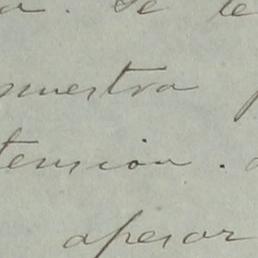 a. Se le
muestra
tension.
apesar